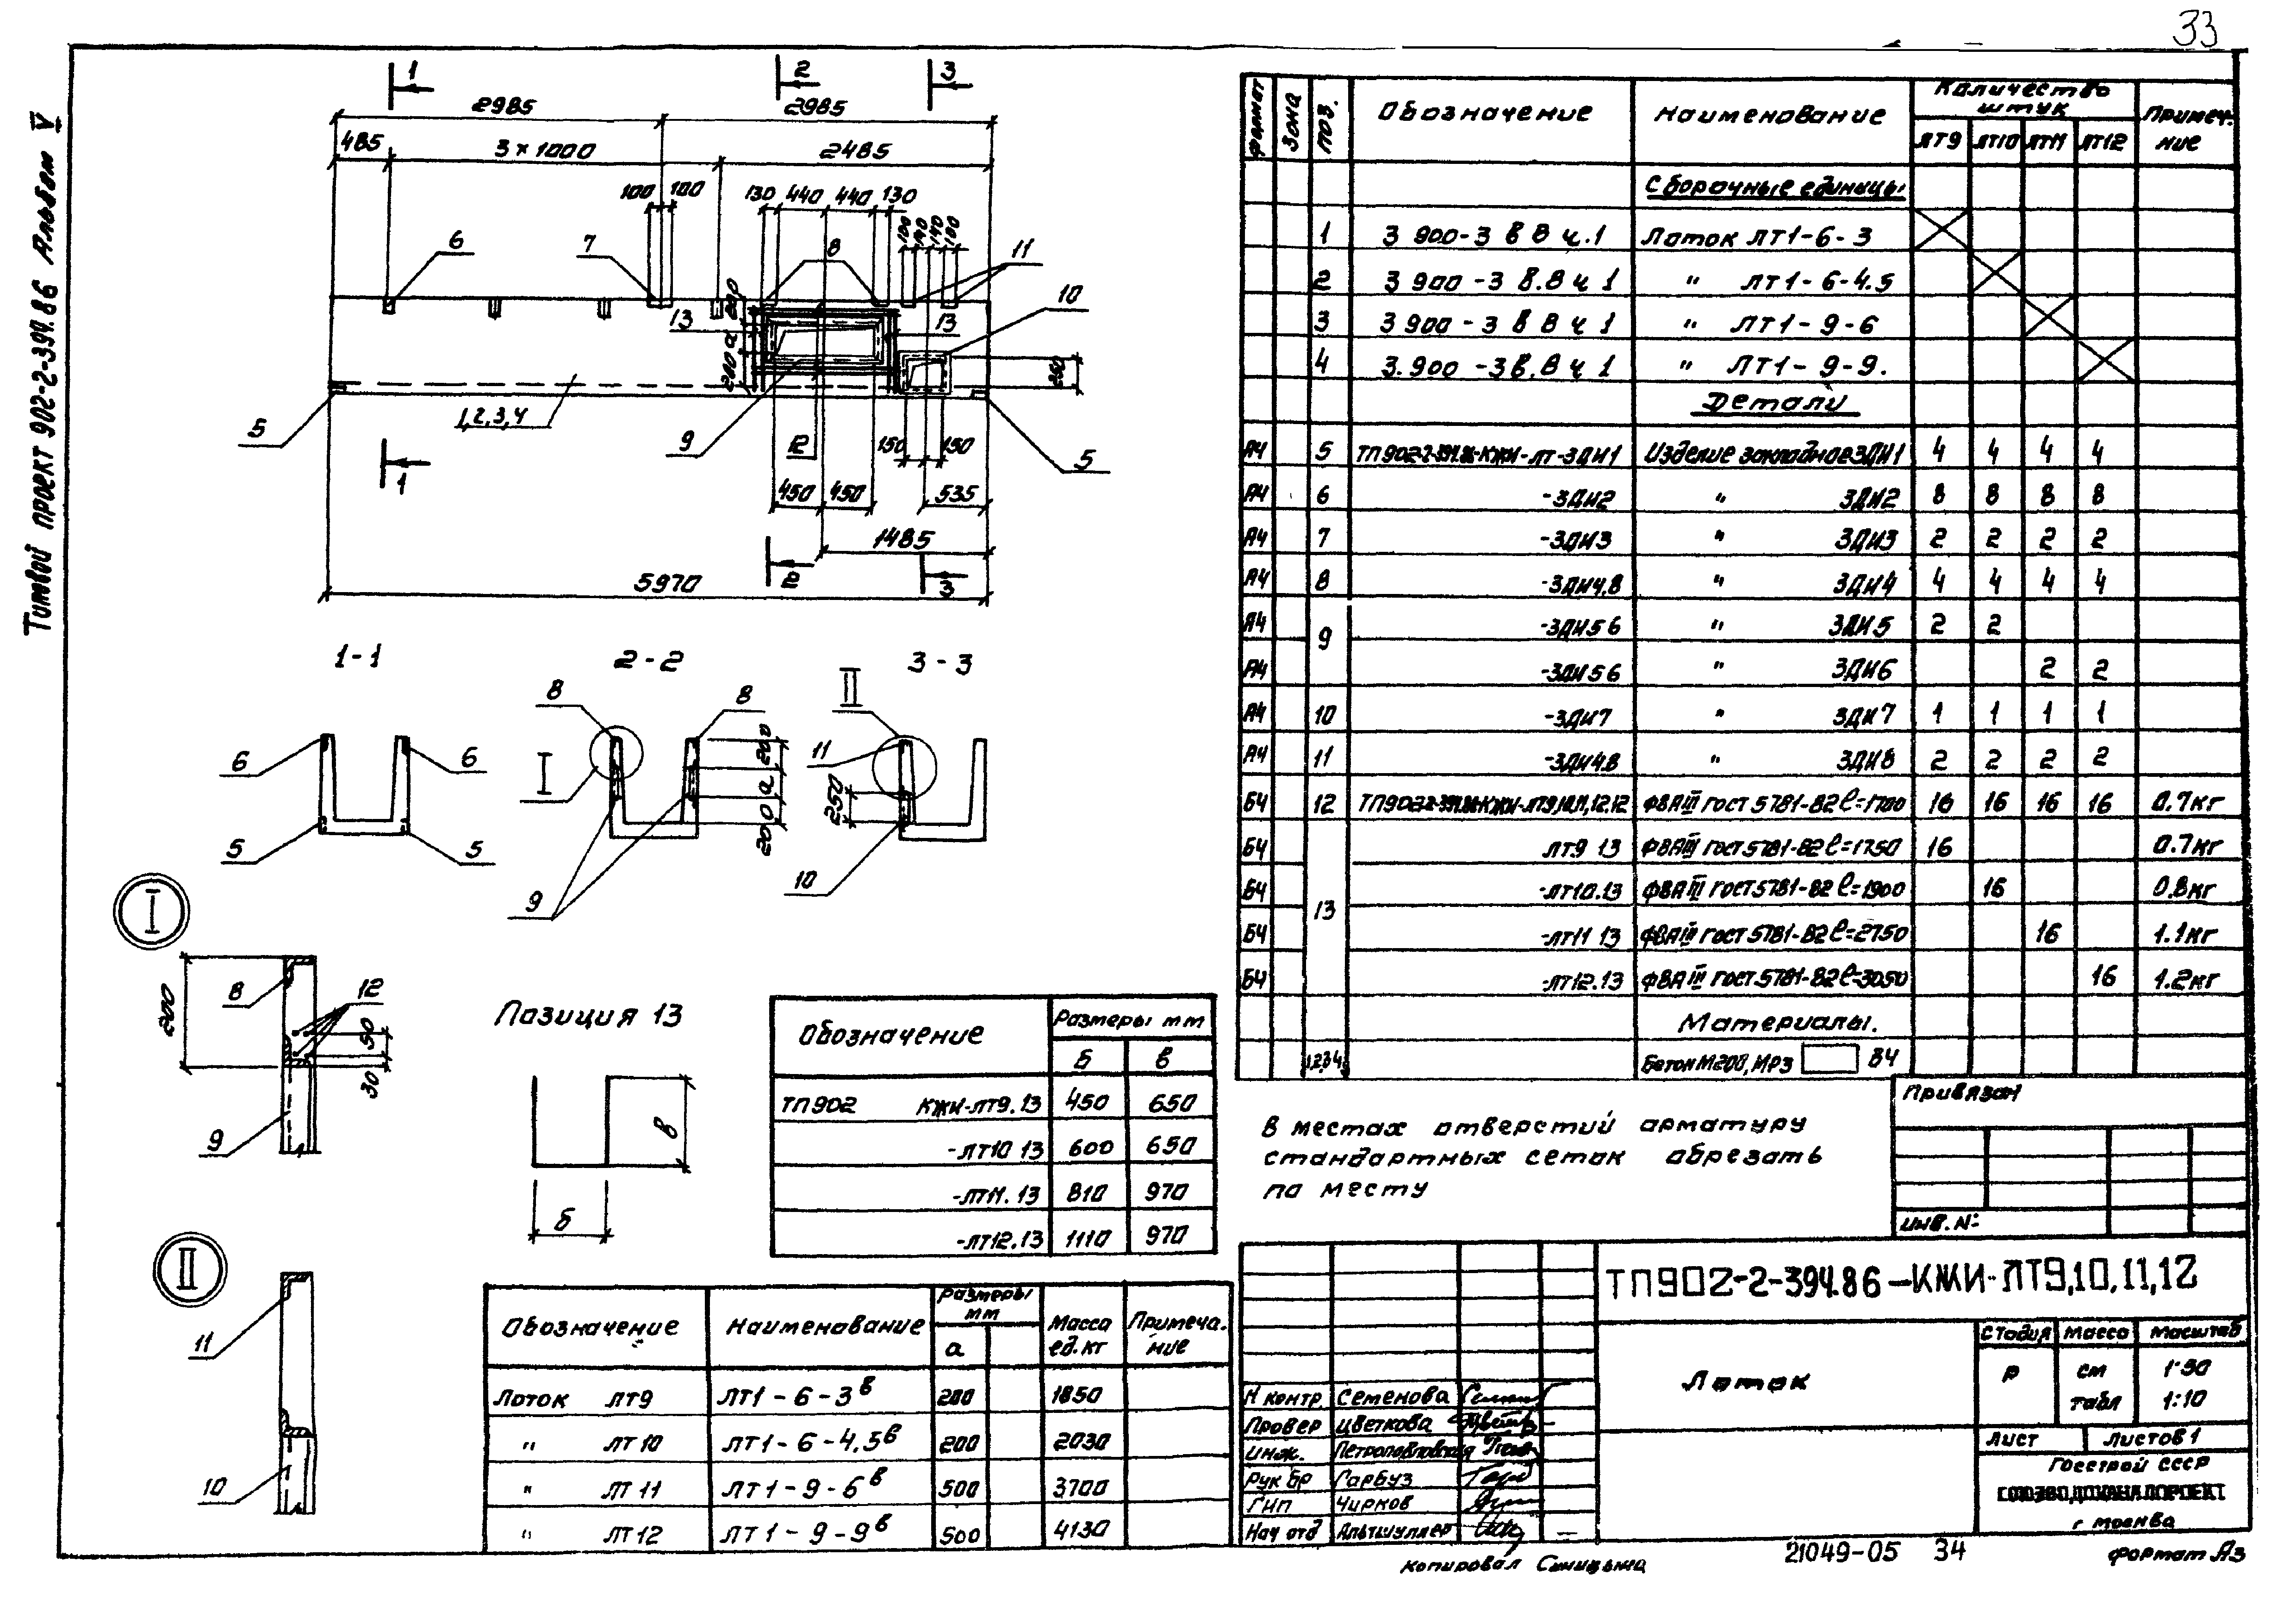 33
Типовой проект 902-2-394.86 Альбом V
1 2 3
2985 2985
485 3×1000 2485
100 100 130 440 440 130
100 140 140 100
6 7 8 11
10
200 13 13
а
200 250
1,2,3,4
5 9 12 150 150 5
1 450 450 535
1485
2 3
5970
1-1 2-2 3-3
II
8 8
6 6 I 11
200
а
200
250
5 5
9 10
I
200
8 12
50
30
9
II
11
10
Позиция 13
в
б
Обозначение Размеры мм
б в
ТП902 КЖИ-ЛТ9.13 450 650
-ЛТ10 13 600 650
-ЛТ11. 13 810 970
-ЛТ12.13 1110 970
Обозначение Наименование Размеры мм Масса ед. кг Примеча-ние
а
Лоток ЛТ9 ЛТ1-6-3в 200 1850
" ЛТ10 ЛТ1-6-4,5в 200 2030
" ЛТ11 ЛТ1-9-6в 500 3700
" ЛТ12 ЛТ1-9-9в 500 4130
Формат Зона Поз. Обозначение Наименование Количество штук Примеч-ние
ЛТ9 ЛТ10 ЛТ11 ЛТ12
Сборочные единицы
1 3 900-3 в 8 ч.1 Лоток ЛТ1-6-3
2 3 900-3 в.8 ч 1 " ЛТ1-6-4.5
3 3 900-3 в 8 ч 1 " ЛТ1-9-6
4 3.900-3 в.8 ч 1 " ЛТ1-9-9.
Детали
А4 5 ТП902-2-394.86-КЖИ-ЛТ-ЗДИ1 Изделие закладное ЗДИ1 4 4 4 4
А4 6 -ЗДИ2 " ЗДИ2 8 8 8 8
А4 7 -ЗДИ3 " ЗДИ3 2 2 2 2
А4 8 -ЗДИ4,8 " ЗДИ4 4 4 4 4
А4 9 -ЗДИ5 6 " ЗДИ5 2 2
А4 -ЗДИ5 6 " ЗДИ6 2 2
А4 10 -ЗДИ7 " ЗДИ7 1 1 1 1
А4 11 -ЗДИ4.8 " ЗДИ8 2 2 2 2
Б4 12 ТП902-2-394.86-КЖИ-ЛТ9,10,11,12.12 Ф8АIII ГОСТ 5781-82 ℓ=1700 16 16 16 16 0.7кг
Б4 ЛТ9 13 Ф8АIII ГОСТ 5781-82 ℓ=1750 16 0.7кг
Б4 13 -ЛТ10.13 Ф8АIII ГОСТ 5781-82 ℓ=1900 16 0.8кг
Б4 -ЛТ11 13 Ф8АIII ГОСТ 5781-82 ℓ=2750 16 1.1кг
Б4 -ЛТ12.13 Ф8АIII ГОСТ.5781-82 ℓ=3050 16 1.2кг
Материалы.
1,2,3,4 Бетон М200, МРЗ В4
В местах отверстий арматуру
стандартных сеток обрезать
по месту
Привязан
Инв. №
ТП902-2-394.86-КЖИ-ЛТ9,10,11,12
Лоток
Стадия Масса Масштаб
Р см табл 1:50 1:10
Лист Листов 1
Н контр Семенова
Провер Цветкова
Инж. Петропавловская
Рук бр Гарбуз
ГИП Чирков
Нач отд Альтшуллер
Госстрой СССР
СОЮЗВОДОКАНАЛПРОЕКТ
г Москва
Копировал Синицына
21049-05 34
Формат А3